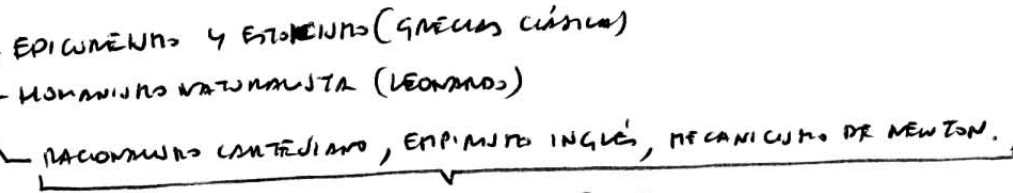 - EPICUREISMO Y ESTOICISMO (GRECIA CLÁSICA)
- HUMANISMO NATURALISTA (LEONARDO)
- RACIONALISMO CARTESIANO, EMPIRISMO INGLÉS, MECANICISMO DE NEWTON.